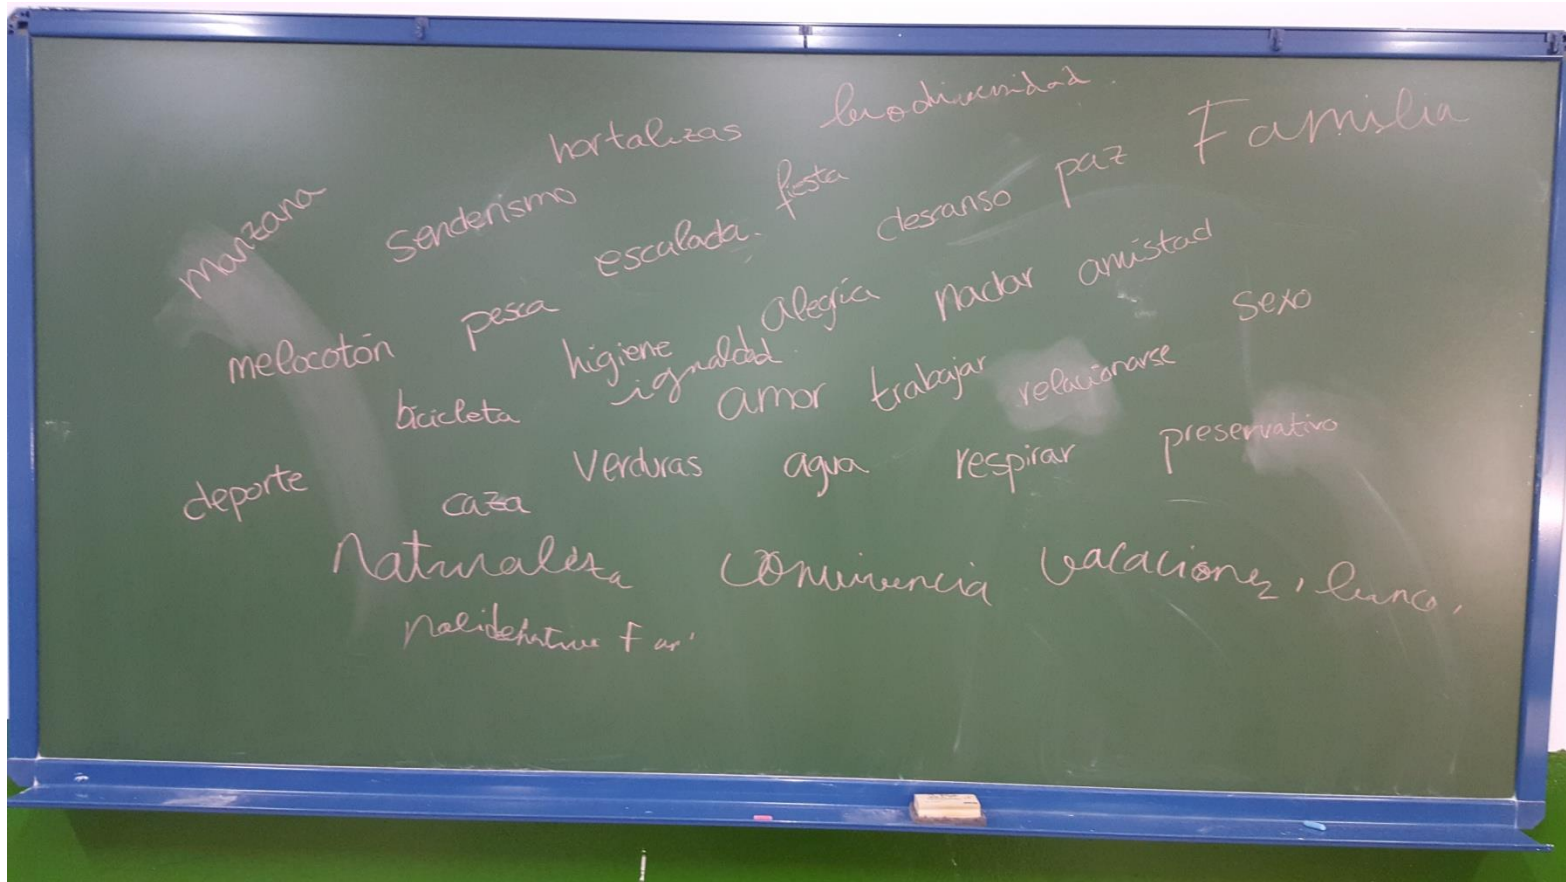 hortalizas biodiversidad.
manzana senderismo escalada. fiesta descanso paz Familia
melocotón pesca higiene alegría nadar amistad sexo
bicicleta igualdad. amor trabajar relacionarse
deporte caza verduras agua respirar preservativo
Naturaleza convivencia vacaciones,